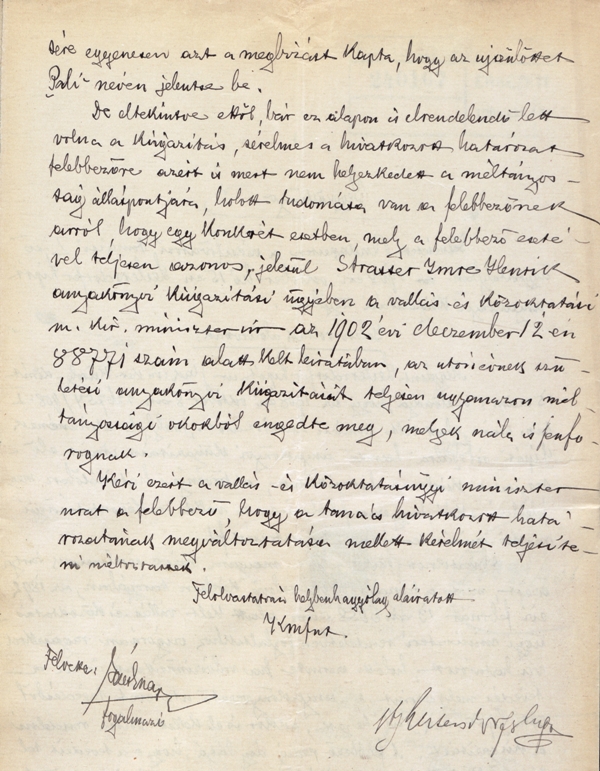 sére egyenesen azt a megbizást kapta, hogy az ujszülöttet
"Pali" néven jelentse be.
De eltekintve ettől, bár ez alapon is elrendelendő lett
volna a kiigazitás, sérelmes a hivatkozott határozat
felebbezőre azért is mert nem helyezkedett a méltányos-
ság álláspontjára, holott tudomása van a felebbezőnek
arról, hogy egy konkrét esetben, mely a felebbező eseté-
vel teljesen azonos, jelesül Strasser Imre Henrik
anyakönyvi kiigazitási ügyében a vallás- és közoktatási
m. kir. miniszter úr az 1902 évi deczember 12-én
88771 szám alatt kelt leiratában, az utónévnek szü-
letési anyakönyvi kiigazitását teljesen ugyanazon mél-
tányossági okokból engedte meg, melyek nála is fenfo-
rognak.
Kéri ezért a vallás- és közoktatásügyi miniszter
urat a felebbező, hogy a tanács hivatkozott hatá-
rozatának megváltoztatása mellett kérelmét teljesite-
ni méltóztassék.
Felolvastatván helybenhagyólag aláiratott
Kmft.
Felvette:
fogalmazó